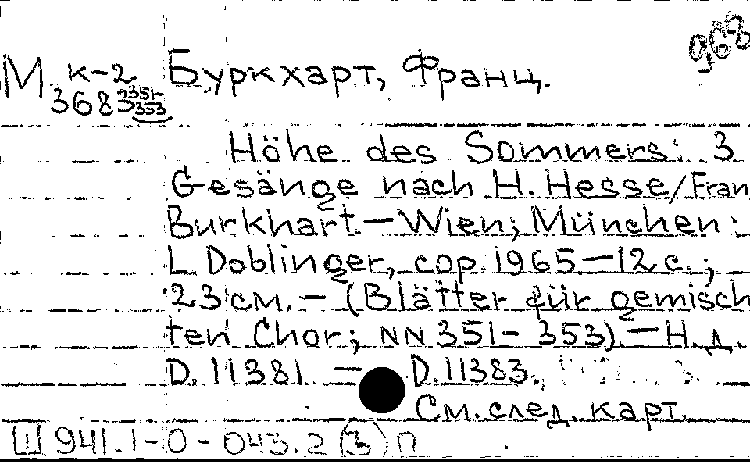 968
М к-2 Буркхарт, Франц.
3683 2351-353
Höhe des Sommers: 3
Gesänge nach H. Hesse/Fran
Burkhart.—Wien; München:
L. Doblinger, cop. 1965.—12 с.;
23 см.—(Blätter für gemisch
ten Chor; NN 351-353).—Н. д.
D. 11381 — D. 11383.
См. след. карт.
Ш 941.1-0-043.2 (3) П